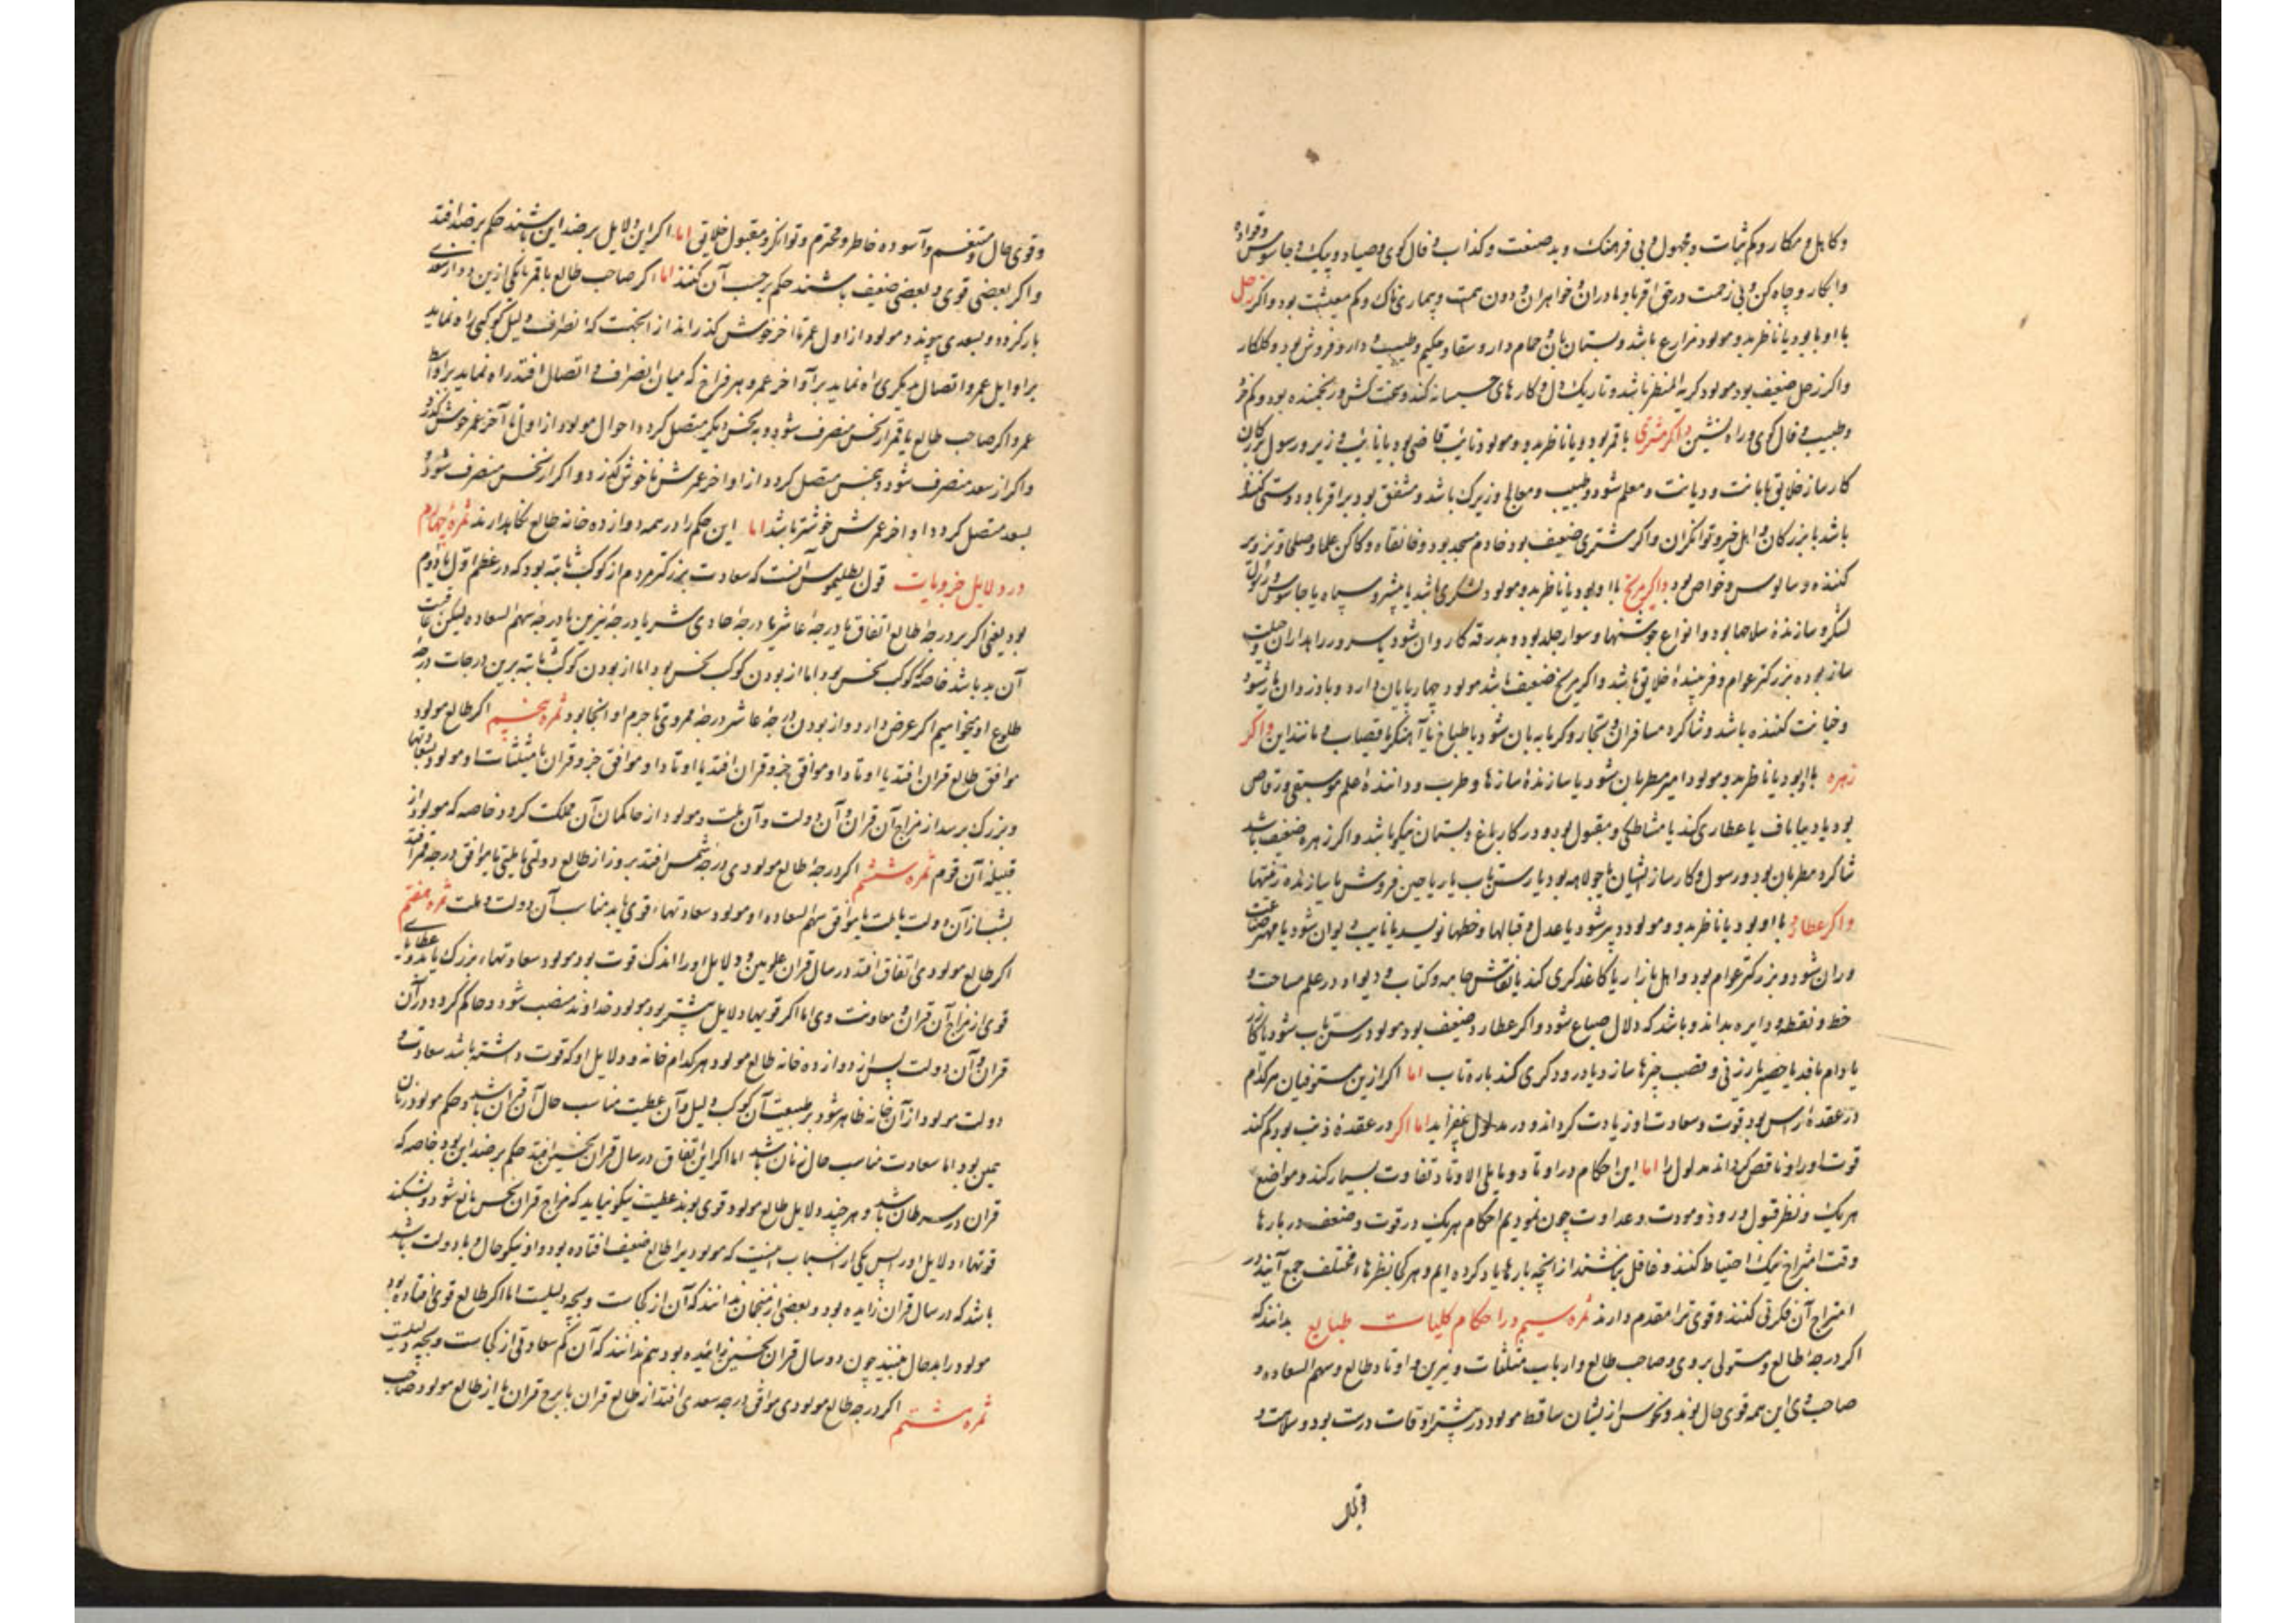 وکاهل و مکار و کم ثبات و مجهول و بی فرهنک و بد صنعت و کذاب و فال کوی و صیاد و پیک و جاسوس
وابکار و چاه کن و بی زحمت در حق اقربا و مادران و خواهران و دون همت و بیماری ناک و کم معیشت بود و اکر زحل
با او بود یا ناظر بدو مولود مزارع باشد و بستان بان و حمام دار و سقا و حکیم و طبیب و دارو فروش بود و کلکار
واکر زحل ضعیف بود مولود کریه المنظر باشد و تاریک دل و کارهای خسیسانه کند و سخت کش و رنجنده بود و کم خرد
وطبیب و فال کوی و راه نشین واکر مشتری با قمر بود و یا ناظر بدو و مولود نایب قاضی بود یا نایب وزیر و رسول بزرکان
کارساز خلایق بامانت و دیانت و معلم شود و طبیب و معالج و زیرک باشد و مشفق بود بر اقربا و دوستی کننده
باشد با بزرکان و اهل خیر و توانکران واکر مشتری ضعیف بود خادم مسجد بود و خانقاه و کاکن علما و صلحا و تزویر
کننده و سالوس و خواص بود واکر مریخ با او بود یا ناظر بدو مولود لشکری باشد یا پیشرو سپاه یا جاسوس و رسول
لشکر و سازنده سلاحها بود و انواع جوشنها و سوار جلد بود و بدرقه کاروان شود یا سرور راهداران و حیلت
ساز بوده بزرکتر عوام و فریبنده خلایق باشد واکر مریخ ضعیف باشد مولود چهارپایان دارد و با دزدان یار شود
وخیانت کننده باشد و شاکرد مسافران و تجار و کرباسه بان شود یا طباخ یا آهنکر یا قصاب و مانند این واکر
زهره با او بود یا ناظر بدو مولود امیر مطربان شود یا سازنده سازها و طرب و داننده علم موسیقی و رقاص
بود یا دیباباف یا عطاری کند یا مشاطکی و مقبول بود و در کار باغ و بستان نیکو باشد واکر زهره ضعیف باشد
شاکرد مطربان بود و رسول و کارساز ایشان یا جولاهه بود یا رسن تاب یا ریاحین فروش یا سازنده زینتها
واکر عطارد با او بود یا ناظر بدو و مولود دبیر شود یا عدل و قبالها و خطها نویسد یا نایب دیوان شود یا مهتر صناعت
وران شود و بزرکتر عوام بود و اهل بازار یا کاغذکری کند یا نقاش جامه و کتاب و دیوار و در علم مساحت و
خط و نقطه و دایره بداند و باشد که دلال ضیاع شود واکر عطارد ضعیف بود مولود رسن تاب شود یا کازر
یا دام بافد یا حصیر یا رزنی و قصب چیزها سازد یا درودکری کند باره تاب اما اکر ازین مستوفیان هرکدام
در عقده راس بود قوت و سعادت او زیادت کرداند و در مدلول بیفزاید اما اکر در عقده ذنب بود کم کند
قوت او را و ناقص کرداند مدلول را اما این احکام در اوتاد و مایلی الاوتاد تفاوت بسیار کند و مواضع
هریک و نظر قبول و رد و مودت و عداوت چون نمودیم احکام هریک در قوت و ضعف در بارها
وقت امتزاج نیک احتیاط کنند و غافل نباشند از انچه بارها یاد کرده ایم و هر کجا نظرهاء مختلف جمع آیند در
امتزاج آن فکرتی کنند و قوی تر را مقدم دارند ثمره سیم در احکام کلیات طبایع بدانند که
اکر درجه طالع و مستولی بر وی و صاحب طالع و ارباب مثلثات و نیرین و اوتاد طالع و سهم السعاده و
صاحب وی این همه قوی حال بوند و نحوس از ایشان ساقط مولود در بیشتر اوقات درست بود و سلامت و
وقوی حال و متنعم و آسوده خاطر و محترم و توانکر و مقبول خلایق اما اکر این دلایل بر ضد این باشند حکم بر ضد افتد
واکر بعضی قوی و بعضی ضعیف باشند حکم بر حسب آن کنند اما اکر صاحب طالع یا قمر یا یکی ازین دو از سعدی
بازکردد و بسعدی پیوندد مولود از اول عمر تا اخر خوش کذراند از آنجهت که انصراف دلیل کوکبی راه نماید
بر اوایل عمر و اتصال بدیکری راه نماید بر آواخر عمر و هر فراخ که میان انصراف و اتصال افتد راه نماید بر اواسط
عمر و اکر صاحب طالع یا قمر از نحس منصرف شود و به نحس دیکر متصل کردد احوال مولود از اول تا آخر عمر خوش نکذرد
واکر از سعد منصرف شود و بنحس متصل کردد از اواخر عمرش ناخوش کذرد و اکر از نحس منصرف شود و
بسعد متصل کردد اواخر عمرش خوشتر باشد اما این حکم را در همه دوازده خانه طالع نکاهدارند ثمره چهارم
در دلایل جزویات قول بطلیموس آنست که سعادت بزرکتر مردم از کوکب ثابته بود که در عظم اول یا دوم
بود یعنی اکر بر درجه طالع اتفاق یا درجه عاشر یا درجه حادی عشر یا درجه نیرین یا درجه سهم السعاده لیکن عاقبت
آن بد باشد خاصه که کوکب نحس بود اما از بودن کوکب نحس بود اما از بودن کوکب ثابته برین درجات درجه
طلوع او میخواهیم اکر عرض دارد و از بودن درجه عاشر درجه ممر وی تا جرم او انجا بود ثمره پنجم اکر طالع مولود
موافق طالع قران افتد یا اوتاد او موافق جزو قران افتد یا اوتاد او موافق جزو قران یا مثلثات او مولود بسعادتها
وبزرکی برسد از مزاج آن قران و آن دولت و آن ملت و مولود از حاکمان آن مملکت کردد خاصه که مولود از
قبیله آن قوم ثمره ششم اکر درجه طالع مولودی درجه شمس افتد بروز از طالع دولتی یا ملتی یا موافق درجه قمر افتد
بشب از آن دولت یا ملت یا موافق سهم السعاده او مولود سعادتهاء قوی یابد مناسب آن دولت و ملت ثمره هفتم
اکر طالع مولودی اتفاق افتد در سال قران علویین و دلایل او را اندک قوت بود مولود سعادتهاء بزرک یابد و عطایای
قوی از مزاج آن قران و معاونت وی اما اکر قویها و دلایل بیشتر بود مولود خداوند منصب شود و حاکم کردد در آن
قران و آن دولت پس از دوازده خانه طالع مولود هرکدام خانه و دلایل او که قوت داشته باشد سعادت و
دولت مولود از آن خانه ظاهر شود بر طبیعت آن کوکب دلیل و آن عطیت مناسب حال آن قران باشد و حکم مولود زنان
همین بود اما سعادت مناسب حال زنان باشد اما اکر این اتفاق در سال قران نحسین افتد حکم بر ضد این بود خاصه که
قران در سرطان باشد و هر چند دلایل طالع مولود قوی بوند عطیت نیکو نیاید که مزاج قران نحس مانع شود و بشکند
قوتهاء دلایل او را پس یکی از اسباب اینست که مولود بر طالع ضعیف افتاده بود و او نیکو حال و با دولت باشد
باشد که در سال قران زاییده بود و بعضی از منجمان ندانند که آن از کجاست و بچه دلیلست اما اکر طالع قوی افتاده بود
مولود را بدحال بینند چون در سال قران نحسین زائیده بود هم ندانند که آن کم سعادتی از کجاست و بچه دلیلست
ثمره هشتم اکر درجه طالع مولودی موافق درجه سعدی افتد از طالع قران یا برج قران یا از طالع مولود صاحب